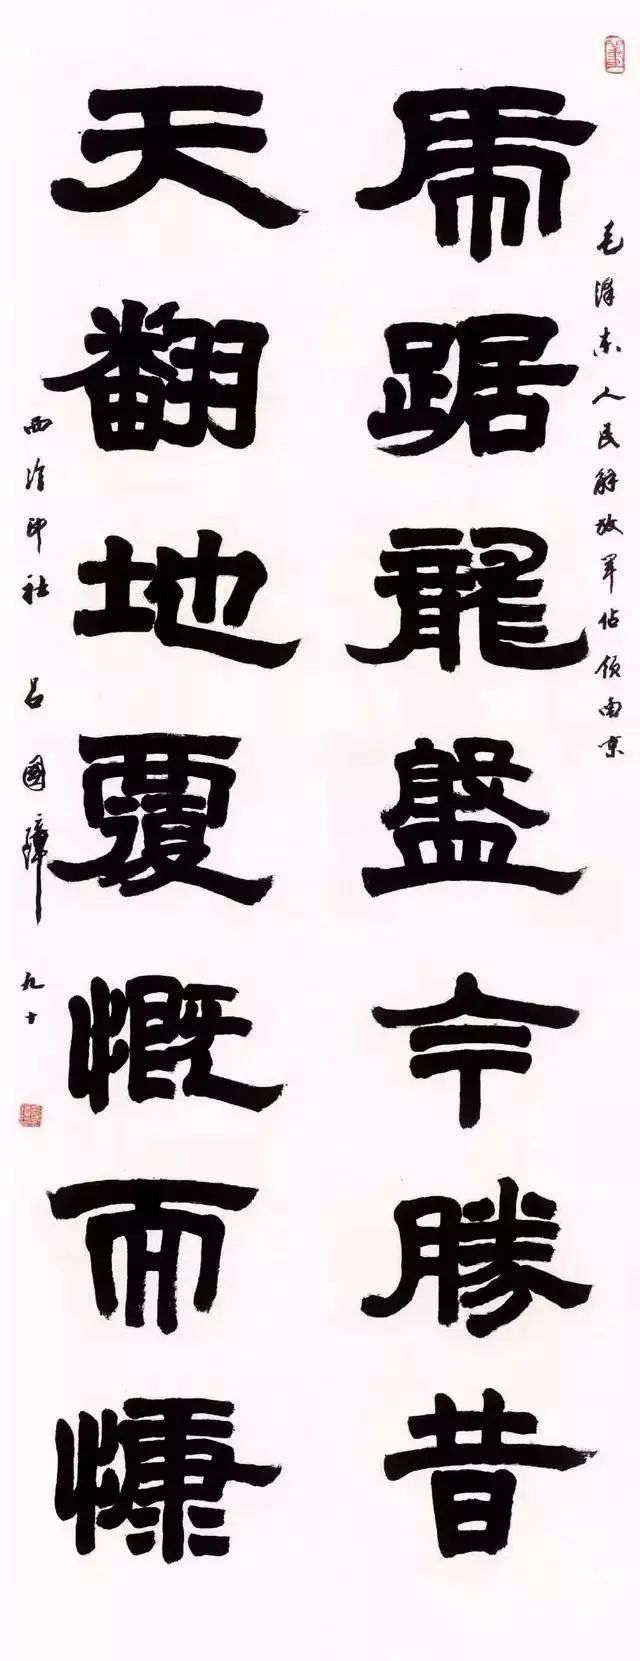 毛泽东人民解放军佔领南京
虎踞龍盤今勝昔
天翻地覆慨而慷
西泠印社 吕國璋 九十